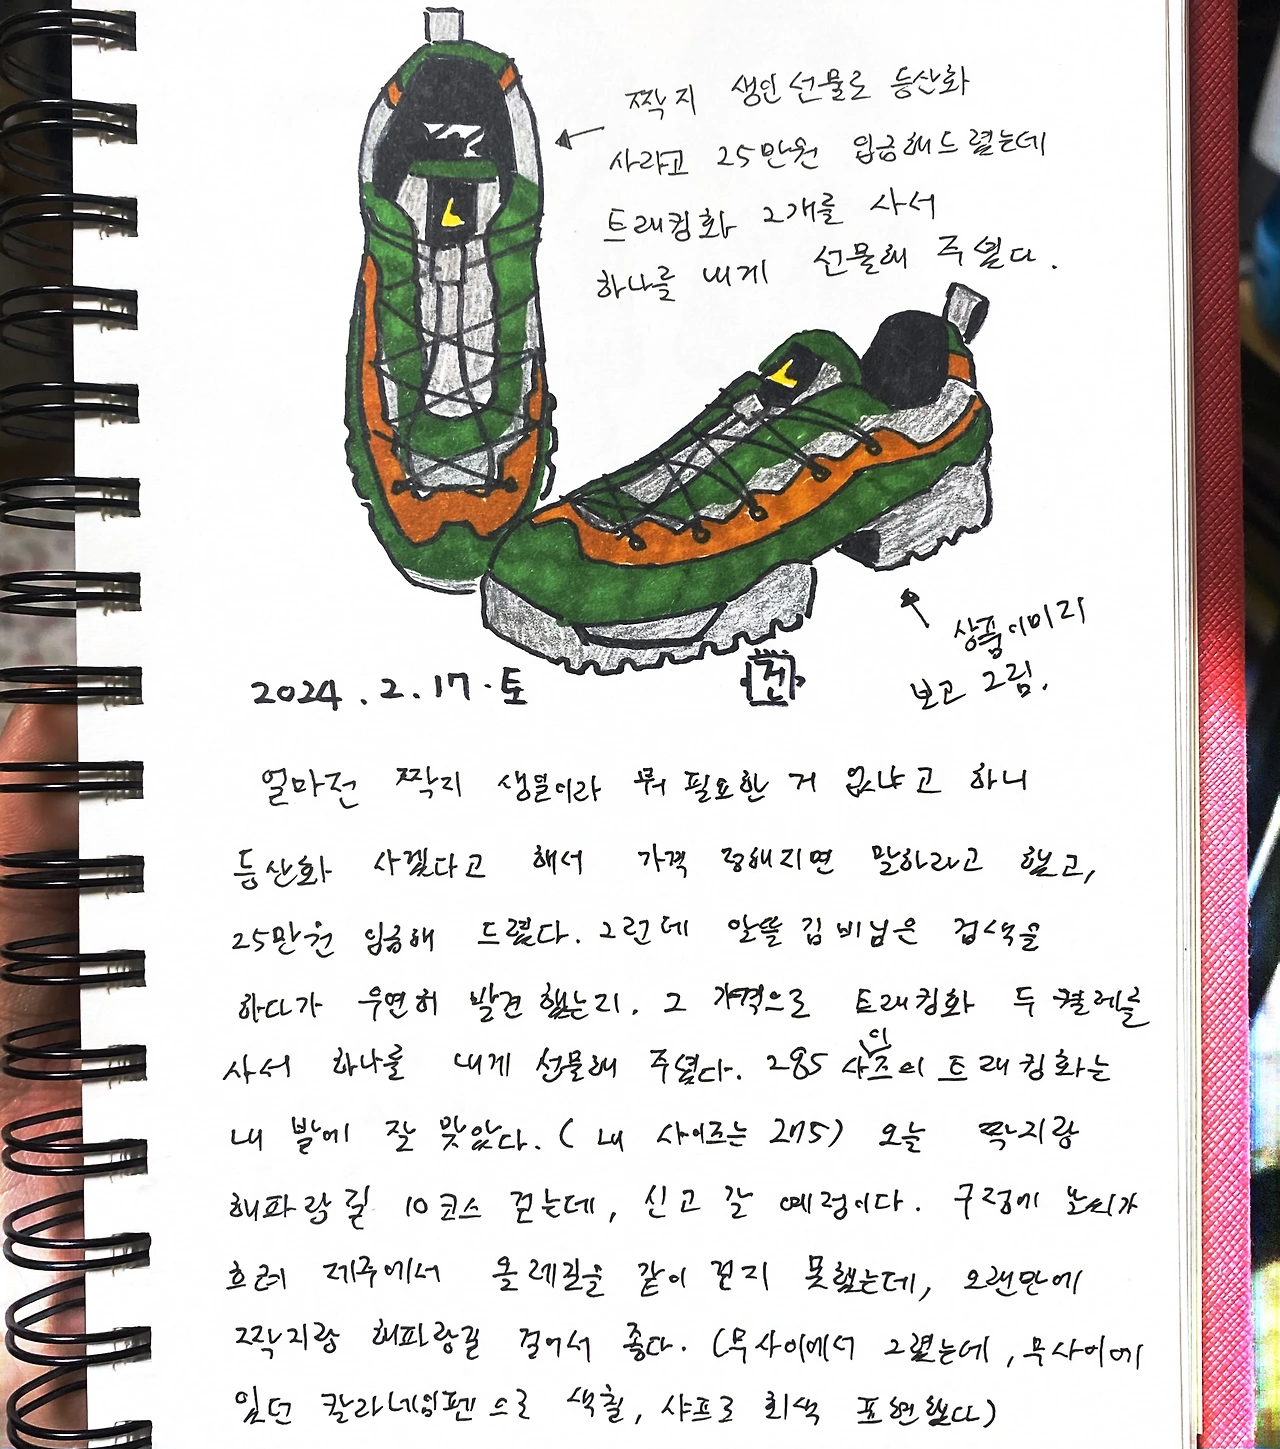 짝지 생일선물로 등산화
사라고 25만원 입금해드렸는데
트래킹화 2개를 사서
하나를 내게 선물해 주셨다.
상품이미지
보고 그림.
2024.2.17.토
건
얼마전 짝지 생일이라 뭐 필요한 거 없냐고 하니
등산화 사겠다고 해서 가격 정해지면 말하라고 했고,
25만원 입금해 드렸다. 그런데 알뜰 김비님은 검색을
하다가 우연히 발견했는지. 그 가격으로 트래킹화 두 켤레를
사서 하나를 내게 선물해 주셨다. 285 사이즈의 트래킹화는
내 발에 잘 맞았다. (내 사이즈는 275) 오늘 짝지랑
해파랑길 10코스 걷는데, 신고 갈 예정이다. 구정에 날씨가
흐려 제주에서 올레길을 같이 걷지 못했는데, 오랜만에
짝지랑 해파랑길 걸어서 좋다. (무사이에서 그렸는데, 무사이에
있던 칼라네임펜으로 색칠, 샤프로 회색 표현했다)